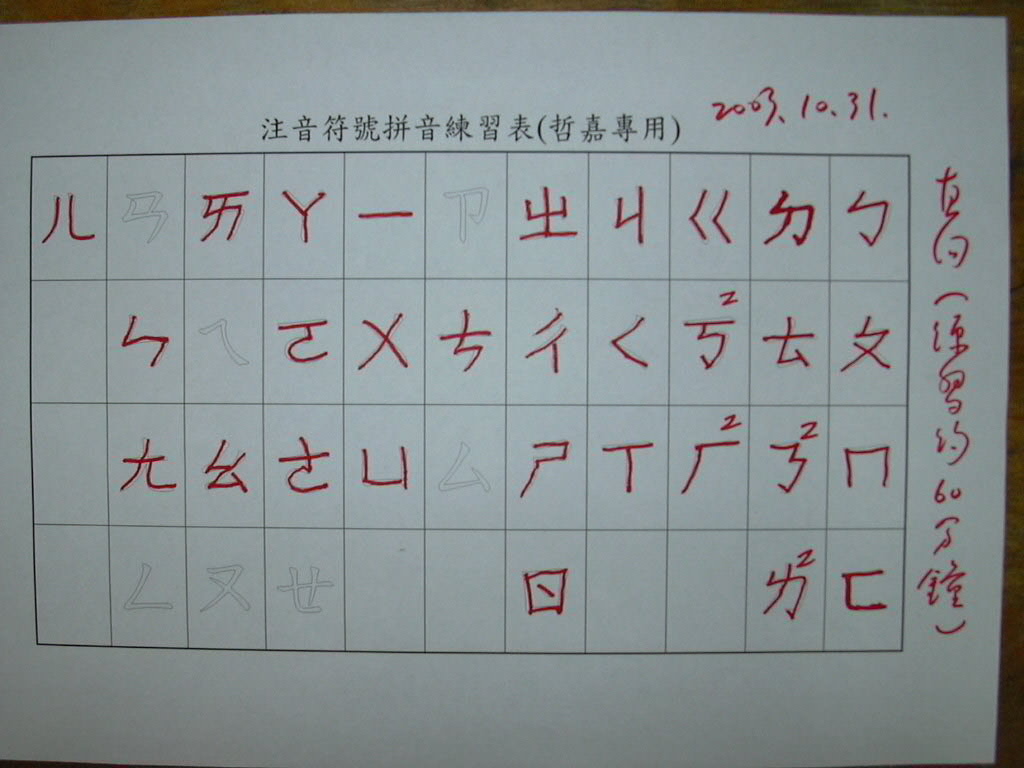 注音符號拼音練習表(哲嘉專用)
2003.10.31.
直向(練習約60分鐘)
ㄅ ㄆ ㄇ ㄈ
ㄉ ㄊ ㄋ 2 ㄌ 2
ㄍ ㄎ 2 ㄏ 2
ㄐ ㄑ ㄒ
ㄓ ㄔ ㄕ ㄖ
ㄗ ㄘ ㄙ
ㄧ ㄨ ㄩ
ㄚ ㄛ ㄜ ㄝ
ㄞ ㄟ ㄠ ㄡ
ㄢ ㄣ ㄤ ㄥ
ㄦ